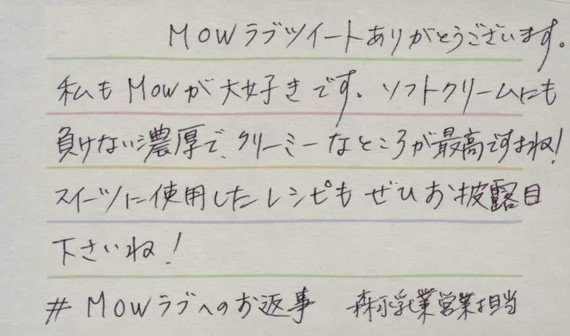 MOWラブツイートありがとうございます。
私もMOWが大好きです。ソフトクリームにも
負けない濃厚で、クリーミーなところが最高ですよね!
スイーツに使用したレシピもぜひお披露目
下さいね!
#MOWラブへのお返事 森永乳業営業担当